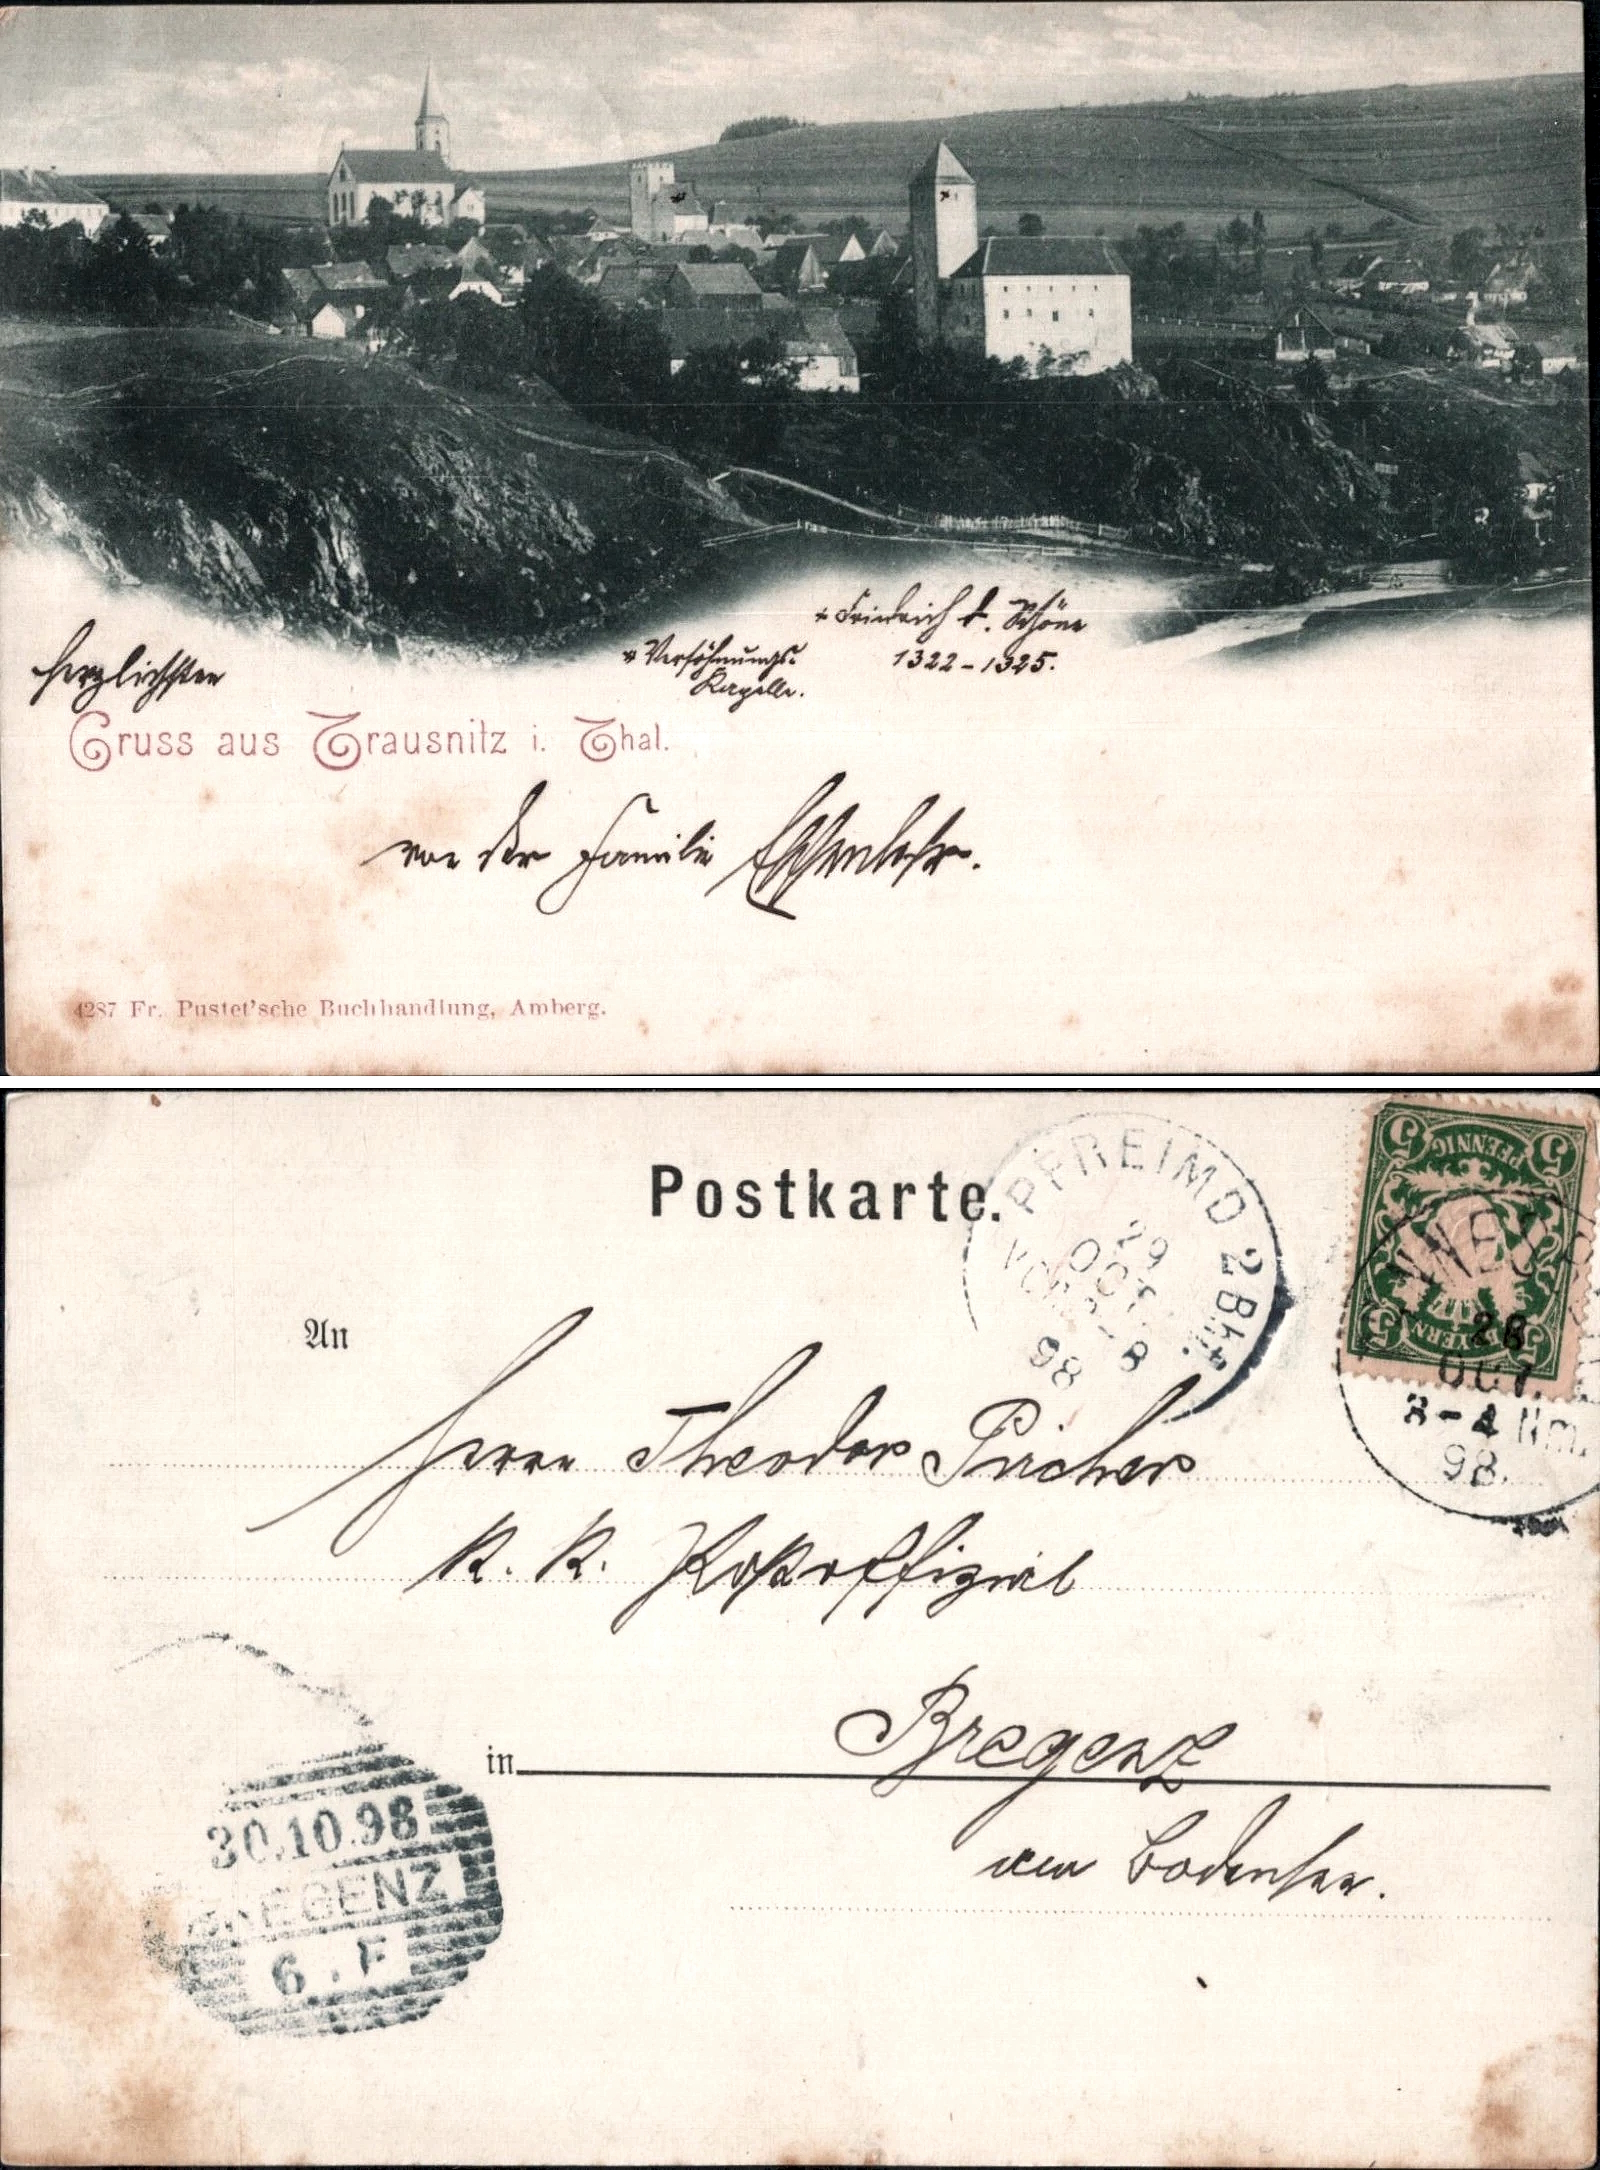 + Friedrich d. Schöne
1322 - 1325.
* Versöhnungs-
Kapelle.
herzlichsten
Gruss aus Trausnitz i. Thal.
von der Familie
4287 Fr. Pustet'sche Buchhandlung, Amberg.
Postkarte.
PFREIMD 2 Bhf.
29
OCT.
VOR. 7-8
98
5 5
PFENNIG
BAYERN
5 5
28
OCT.
3-4 Nm.
98.
An
Herrn Theodor Pircher
K. K. Postoffizial
in Bregenz
am Bodensee.
30.10.98
BREGENZ
6. F